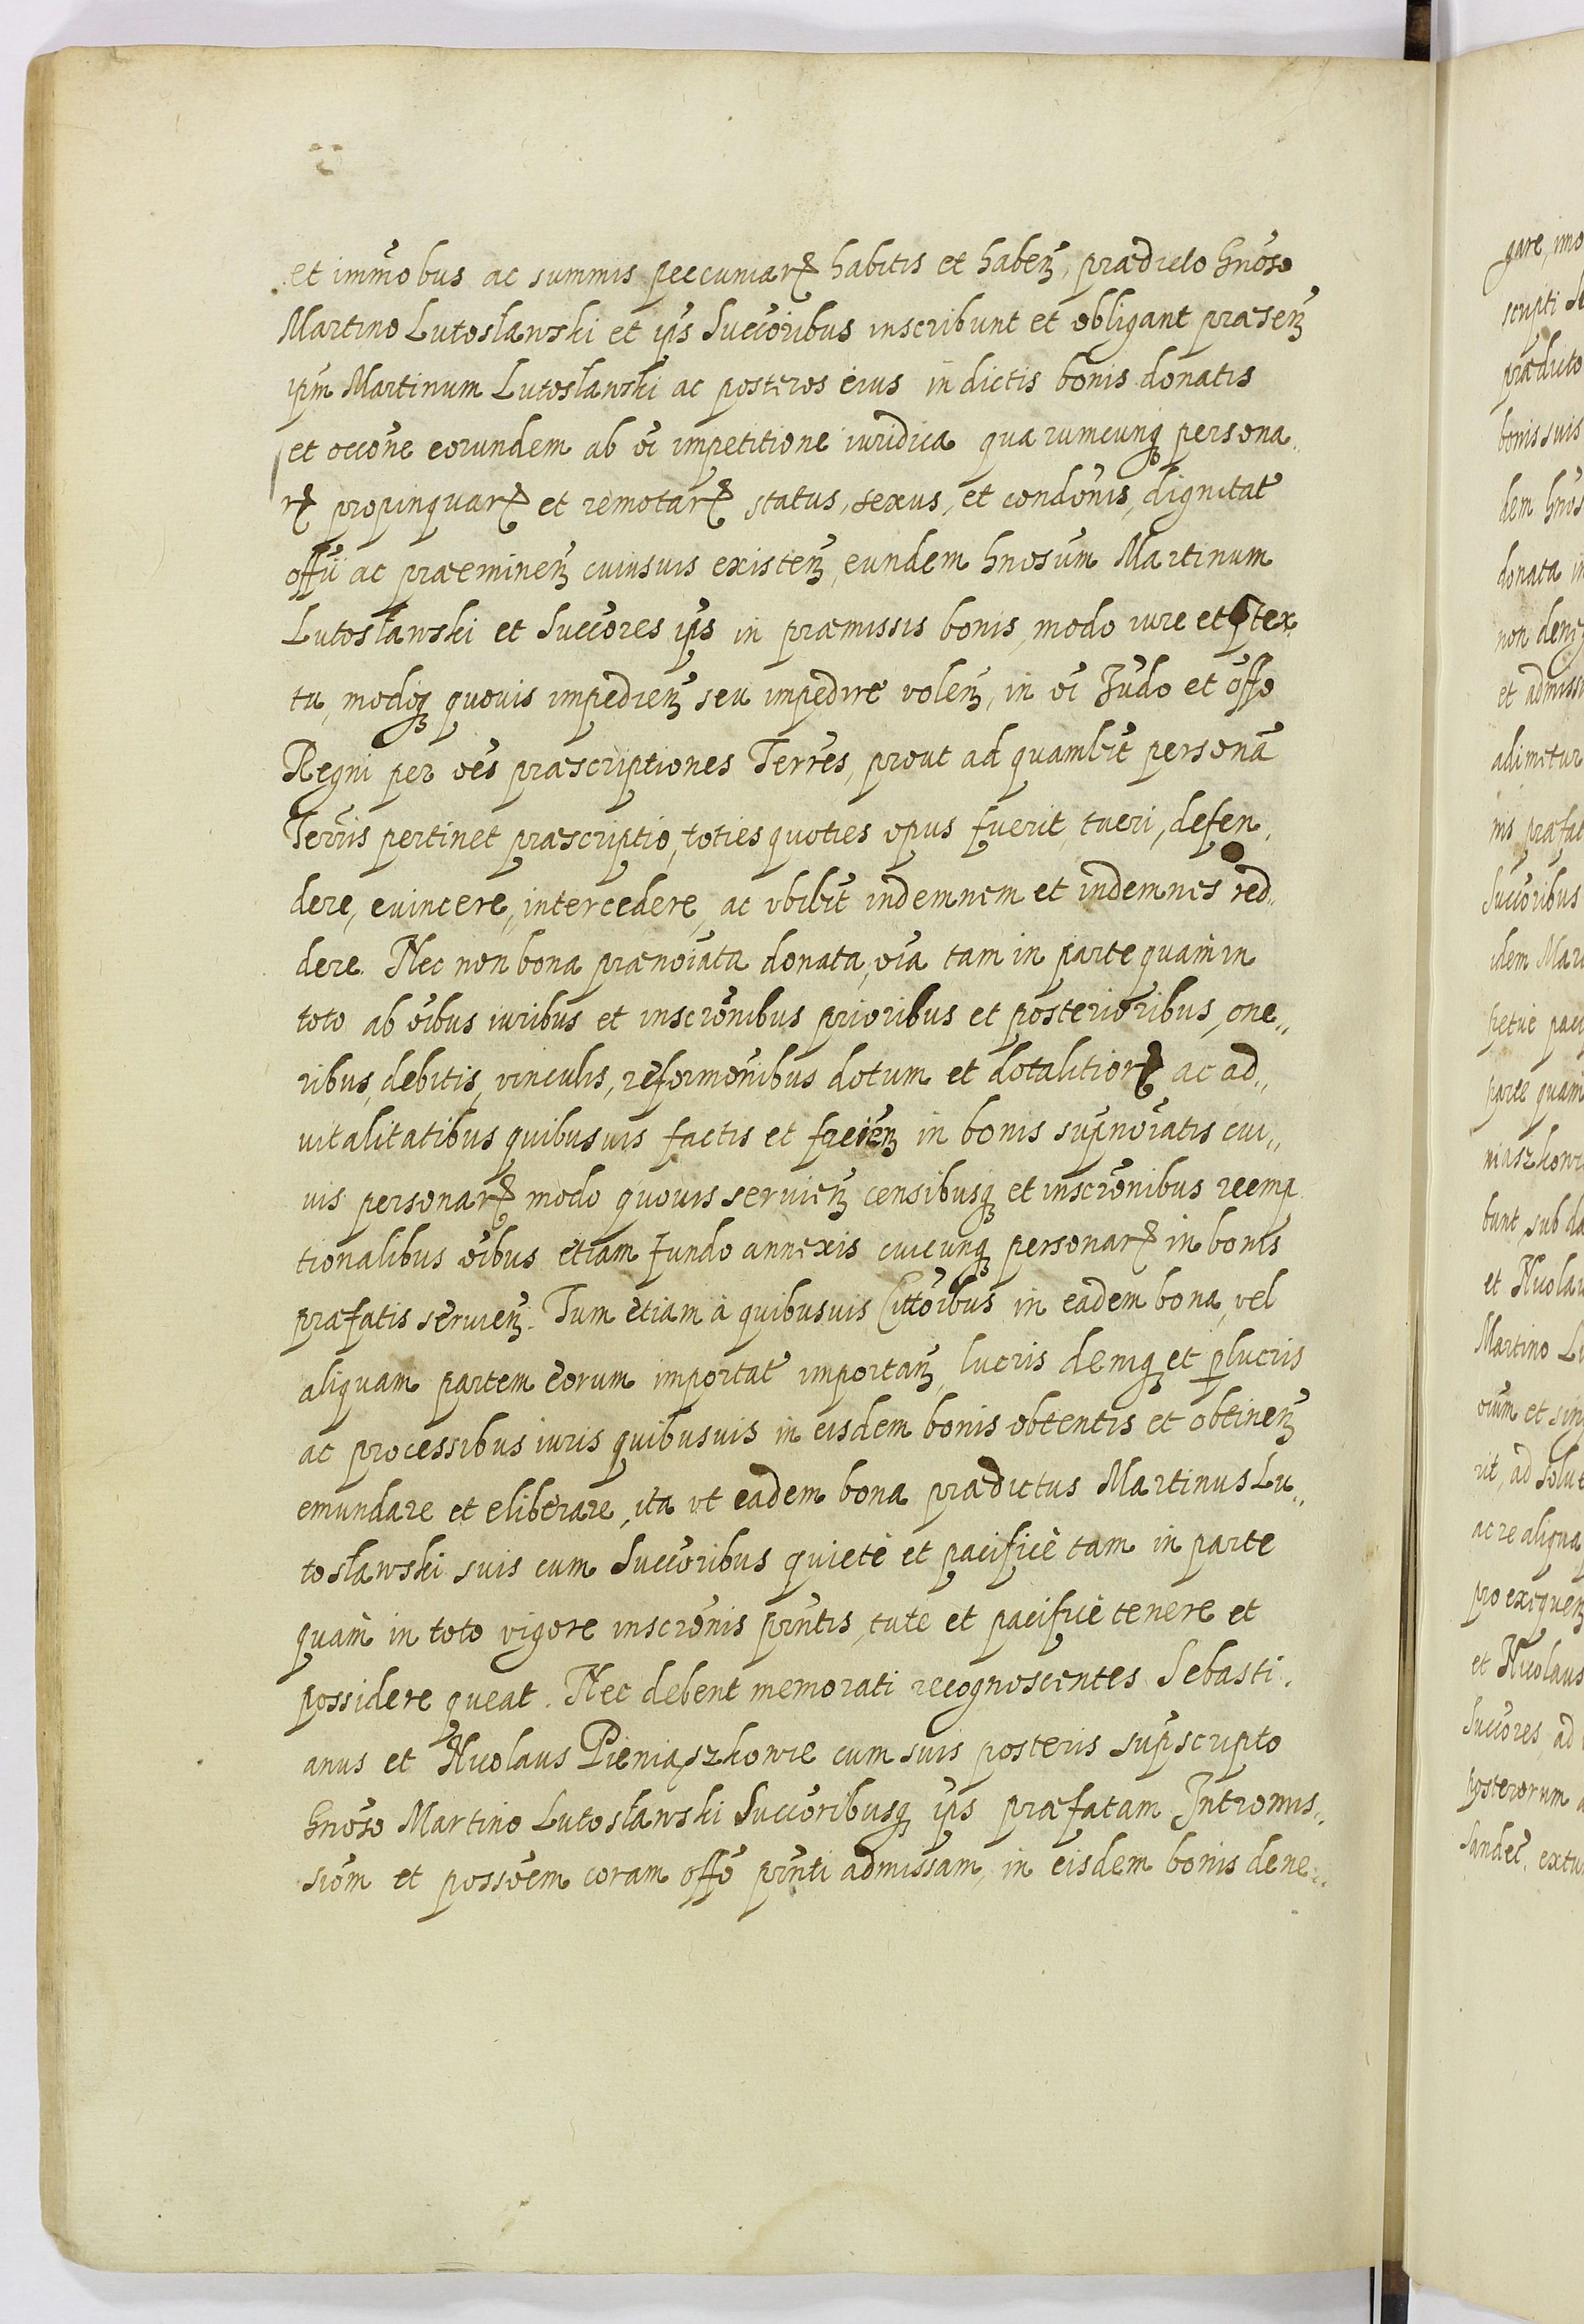 et im̃obus ac summis peccuniarꝝ habitis et habenꝫ, praedicto gñoso
Martino Lutoslawski et ip̃s Succõribus inscribunt et obligant praesenꝫ
ip̃m Martinum Lutoslawski ac posteros eius in dictis bonis donatis
et occõne eorundem ab õi impetitione iuridica quarumcunqꝫ persona„
rꝝ propinquarꝝ et remotarꝝ status, sexus, et condõnis, dignitat̃
offĩi ac praeminenꝫ cuiusuis existenꝫ, eundem gnosũm Martinum
Lutosławski et Succõres ip̃s in praemissis bonis, modo iure et ptex„
tu, modoqꝫ quouis impedienꝫ seu impedire volenꝫ, in õi Iudõ et offõ
Regni per oẽs praescriptiones Terrẽs, prout ad quamlib̃t personã
Terrĩs pertinet praescriptio, toties quoties opus fuerit, tueri, defen„
dere, euincere, intercedere, ac vbilib̃t indemnem et indemnes red„
dere. Nec non bona praenoĩata donata, oĩa tam in parte quàm in
toto ab oĩbus iuribus et inscrõnibus prioribus et posterioribus, one„
ribus, debitis, vinculis, reformõnibus dotum et dotalitiorꝝ ac ad„
uitalitatibus quibusuis factis et fiẽnꝫ in bonis sup̃noĩatis cui„
uis personarꝝ modo quouis seruienꝫ censibusqꝫ et inscrõnibus reemp„
tionalibus oĩbus etiam fundo annexis cuicunqꝫ personarꝝ in bonis
praefatis seruienꝫ. Tum etiam à quibusuis Cittõibus in eadem bona, vel
aliquam partem eorum importat̃ importanꝫ, lucris deniqꝫ et plucris
ac processibus iuris quibusuis in eisdem bonis obtentis et obtinenꝫ
emundare et eliberare, ita vt eadem bona praedictus Martinus Lu„
toslawski suis cum Succõribus quietè et pacificè tam in parte
quàm in toto vigore inscrõnis pñntis, tute et pacificè tenere et
possidere queat. Nec debent memorati recognoscentes Sebasti„
anus et Nicolaus Pieniąszkowie cum suis posteris sup̃scripto
Gnõso Martino Lutosławski Succõribusqꝫ ip̃s praefatam Intromis„
siõm et possẽem coram offõ pñnti admissam, in eisdem bonis dene„